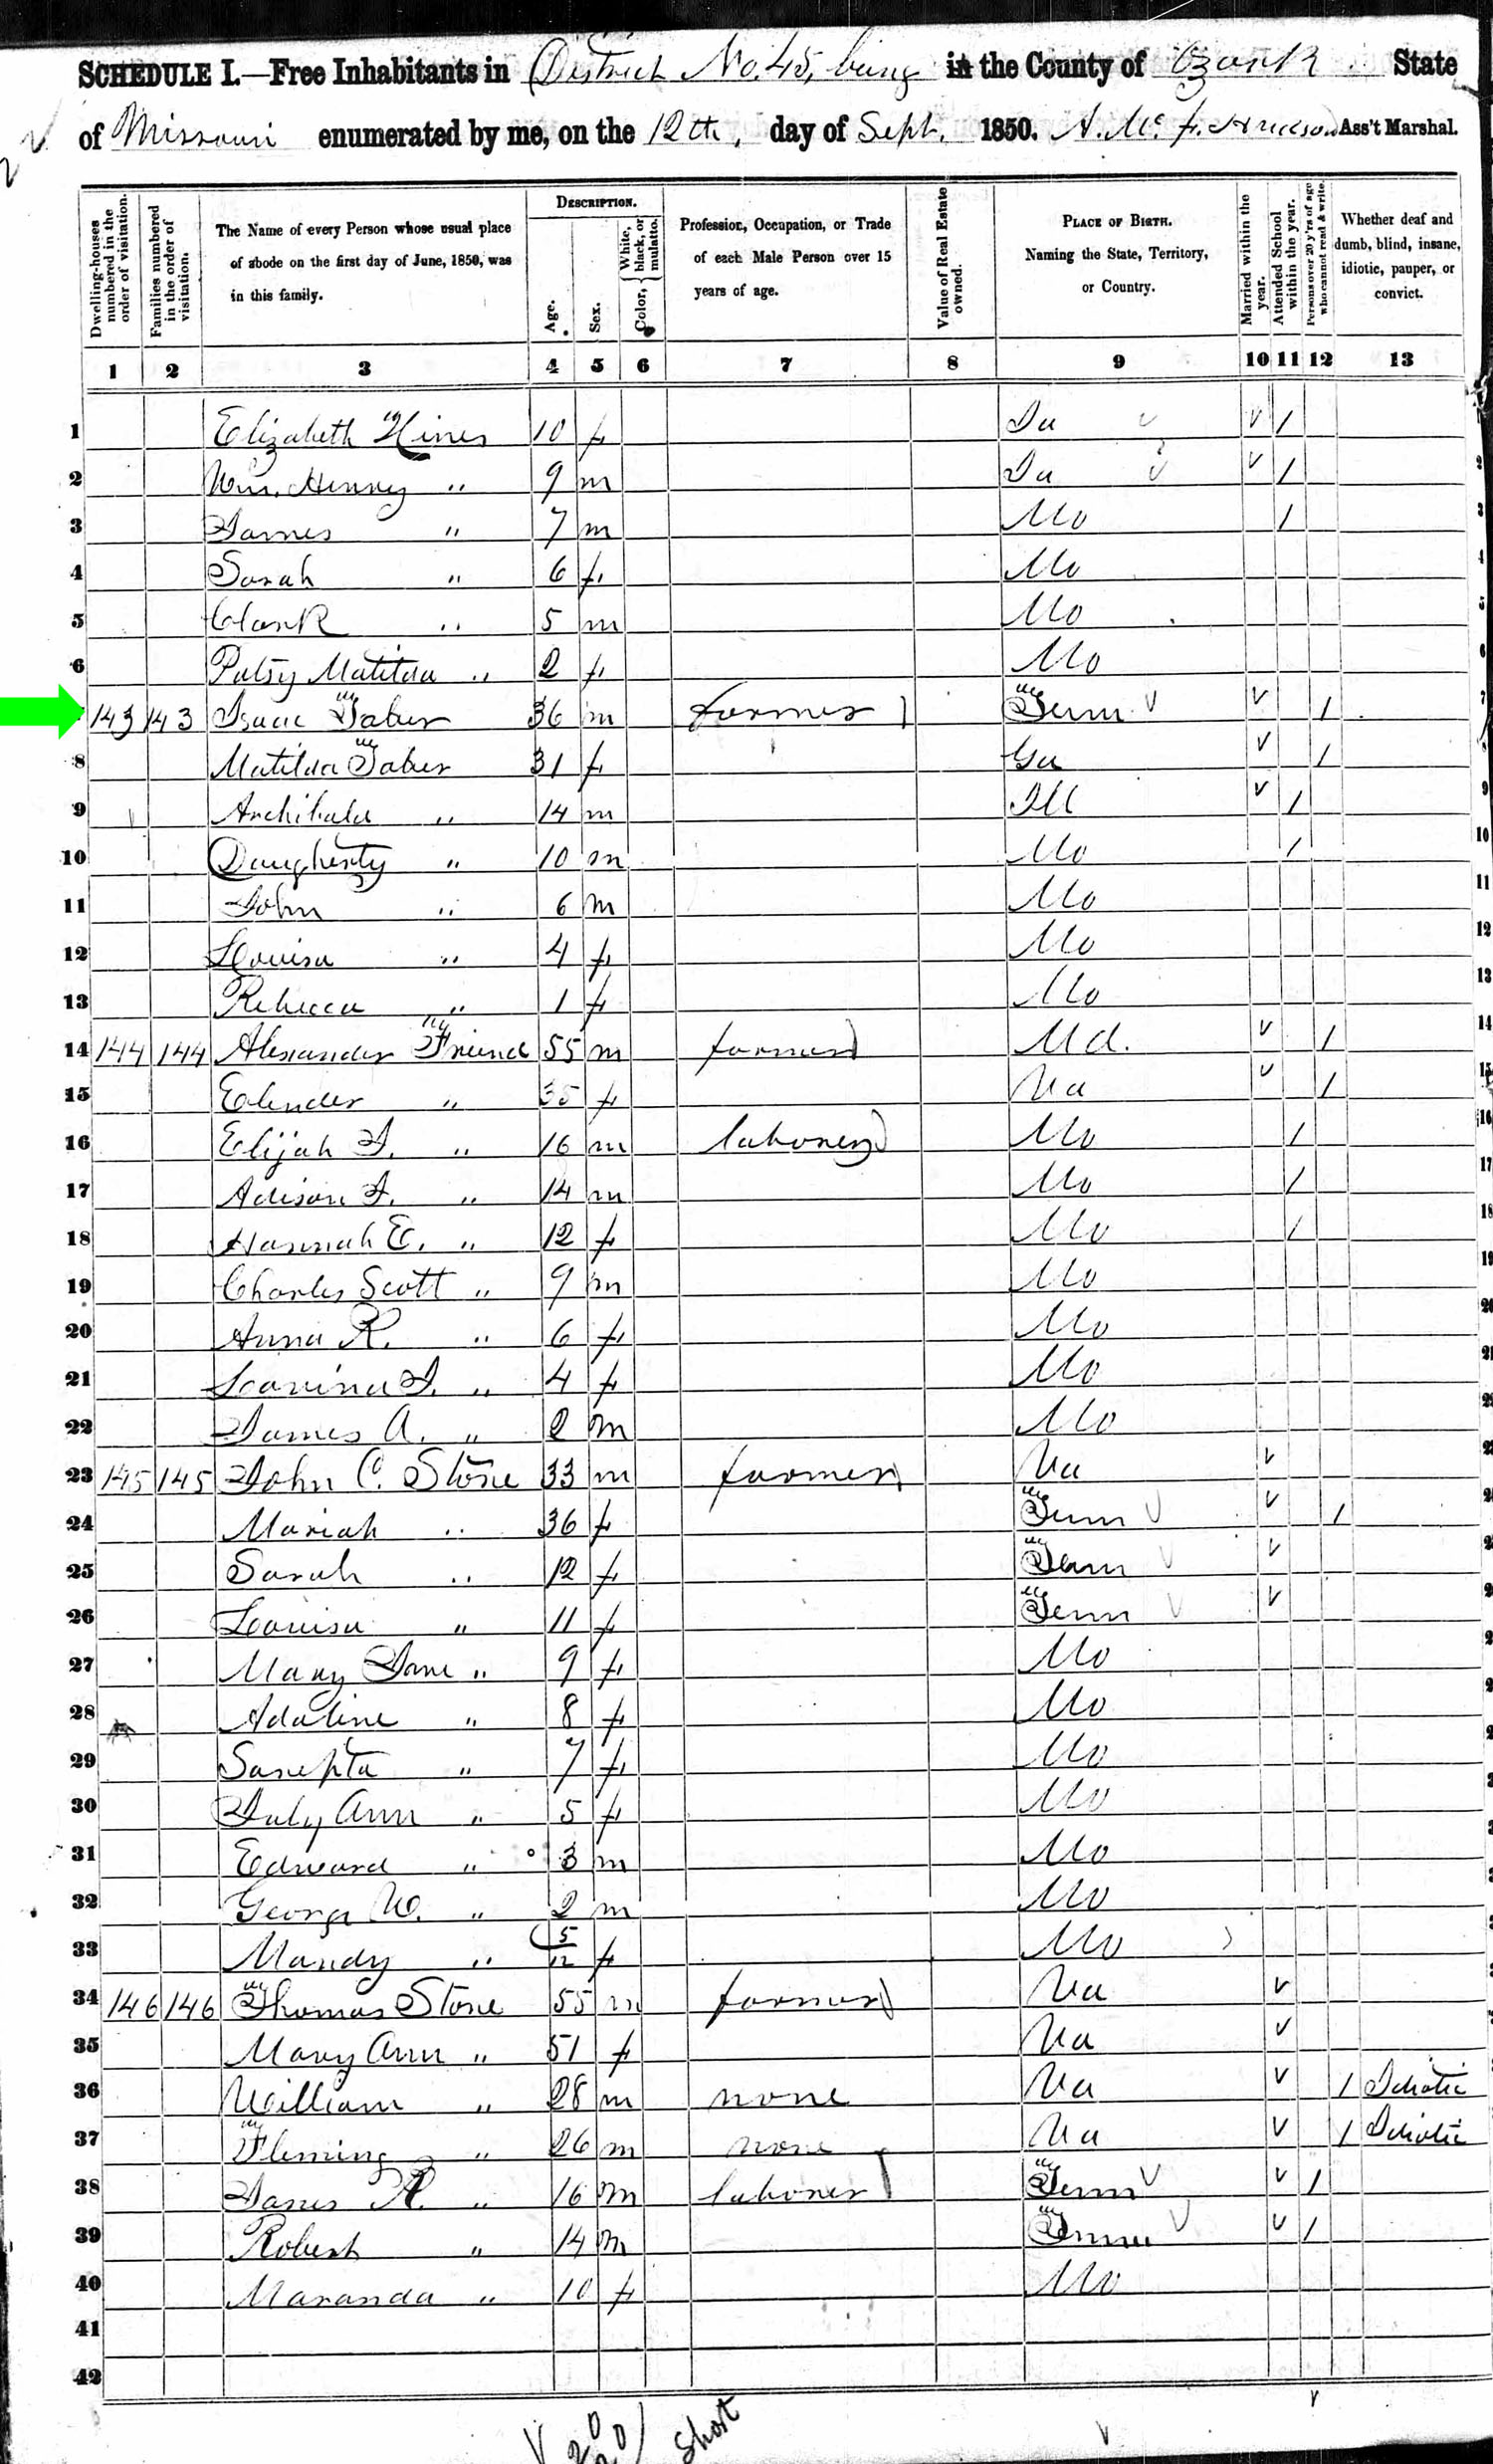 SCHEDULE I.—Free Inhabitants in District No. 45, being in the County of Ozark State
of Missouri enumerated by me, on the 12th, day of Sept. 1850. Ass't Marshal.
Dwelling-houses numbered in the order of visitation.
Families numbered in the order of visitation.
The Name of every Person whose usual place of abode on the first day of June, 1850, was in this family.
DESCRIPTION.
Age.
Sex.
Color, { White, black, or mulatto.
Profession, Occupation, or Trade of each Male Person over 15 years of age.
Value of Real Estate owned.
PLACE OF BIRTH. Naming the State, Territory, or Country.
Married within the year.
Attended School within the year.
Persons over 20 y'rs of age who cannot read & write.
Whether deaf and dumb, blind, insane, idiotic, pauper, or convict.
1 2 3 4 5 6 7 8 9 10 11 12 13
1 Elizabeth Hines 10 f Ia /
2 Wm. Henry " 9 m Ia /
3 James " 7 m Mo /
4 Sarah " 6 f Mo
5 Clark " 5 m Mo
6 Patsy Matilda " 2 f Mo
143 143 Isaac Taber 36 m farmer Tenn 1
8 Matilda Taber 31 f Ga 1
9 Archibald " 14 m Ill /
10 Daugherty " 10 m Mo /
11 John " 6 m Mo
12 Louisa " 4 f Mo
13 Rebecca " 1 f Mo
14 144 144 Alexander Friend 55 m farmer Md. 1
15 Elender " 35 f Va 1
16 Elijah I. " 16 m laborer Mo /
17 Adison F. " 14 m Mo /
18 Hannah E. " 12 f Mo /
19 Charles Scott " 9 m Mo
20 Anna R. " 6 f Mo
21 Lavina I. " 4 f Mo
22 James A. " 2 m Mo
23 145 145 John C. Stone 33 m farmer Va
24 Mariah " 36 f Tenn /
25 Sarah " 12 f Tenn
26 Louisa " 11 f Tenn
27 Mary Jane " 9 f Mo
28 Adaline " 8 f Mo
29 Sarepta " 7 f Mo
30 July Ann " 5 f Mo
31 Edward " 3 m Mo
32 George W. " 2 m Mo
33 Mandy " 5/12 f Mo
34 146 146 Thomas Stone 55 m farmer Va
35 Mary Ann " 51 f Va
36 William " 28 m none Va / Idiotic
37 Fleming " 26 m none Va / Idiotic
38 James R. " 16 m laborer Tenn /
39 Robert " 14 m Tenn /
40 Maranda " 10 f Mo
41
42
20
20 Short